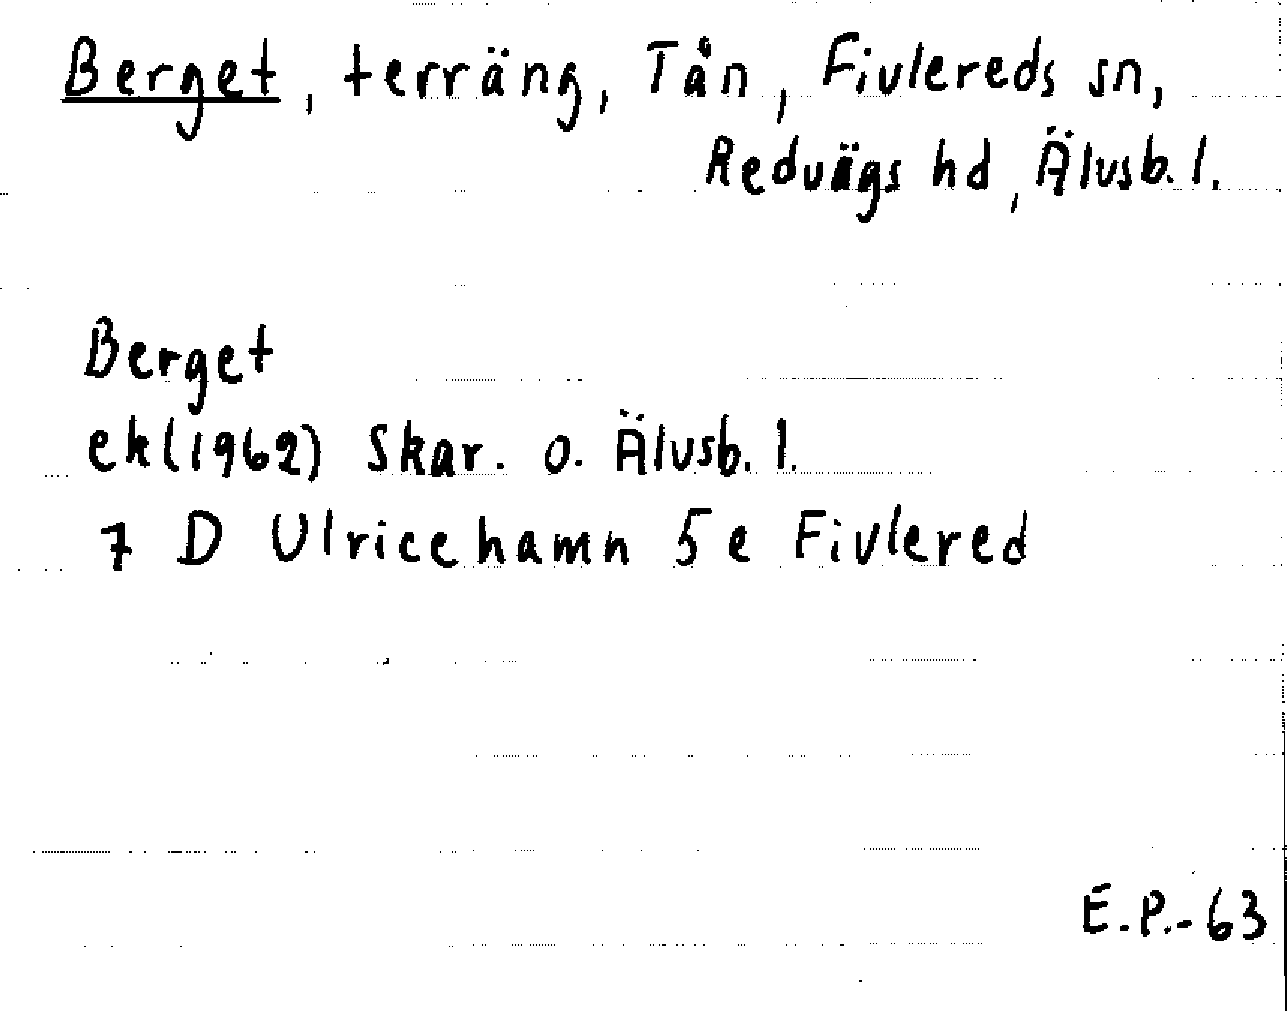 Berget, terräng, Tån, Fivlereds sn,
Redvägs hd, Älvsb. l.
Berget
ek(1962) Skar. o. Älvsb. l.
7 D Ulricehamn 5e Fivlered
E.P.-63